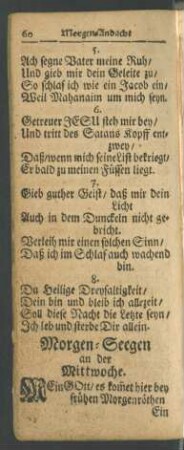 60 Morgen-Andacht
5.
Ach segne Vater meine Ruh/
Und gieb mir dein Geleite zu/
So schlaf ich wie ein Jacob ein/
Weil Mahanaim um mich seyn.
6.
Getreuer JESU steh mir bey/
Und tritt des Satans Kopff ent-
zwey/
Daß/wenn mich seine List bekriegt/
Er bald zu meinen Füssen liegt.
7.
Gieb guther Geist/ daß mir dein
Licht
Auch in dem Dunckeln nicht ge-
bricht.
Verleih mir einen solchen Sinn/
Daß ich im Schlaf auch wachend
bin.
8.
Du Heilige Dreyfaltigkeit/
Dein bin und bleib ich allezeit/
Soll diese Nacht die Letzte seyn/
Ich leb und sterbe Dir allein.
Morgen-Seegen
an der
Mittwoche.
MEin GOtt/ es kom̃et hier bey
frühen Morgenröthen
Ein